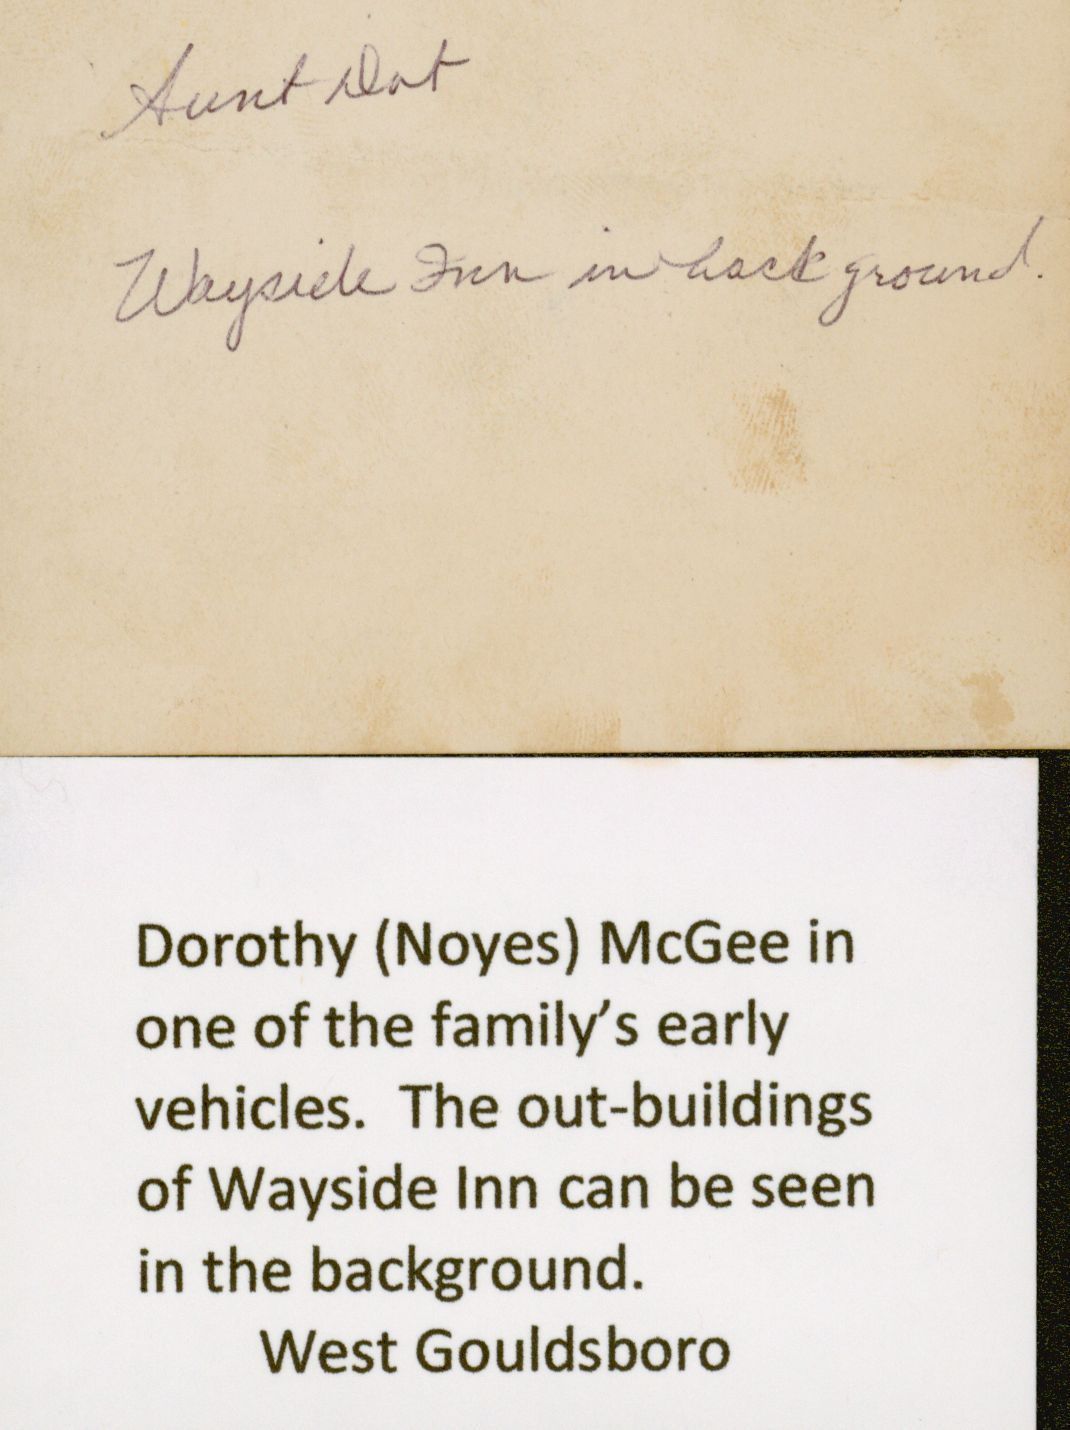 Aunt Dot
Wayside Inn in back ground.
Dorothy (Noyes) McGee in
one of the family’s early
vehicles.  The out-buildings
of Wayside Inn can be seen
in the background.
West Gouldsboro